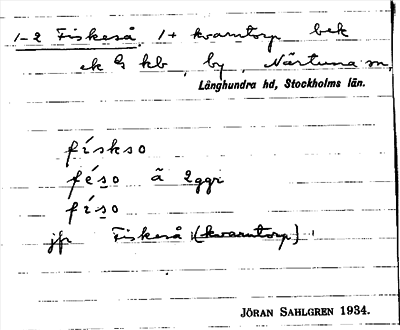 1-2 Fiskeså, 1+ kvarntorp bek
ek o kb, by, Närtuna sn,
Långhundra hd, Stockholms län.
fískso
féso ä 2ggr
físo
jfr Fiskeså (kvarntorp)
JÖRAN SAHLGREN 1934.